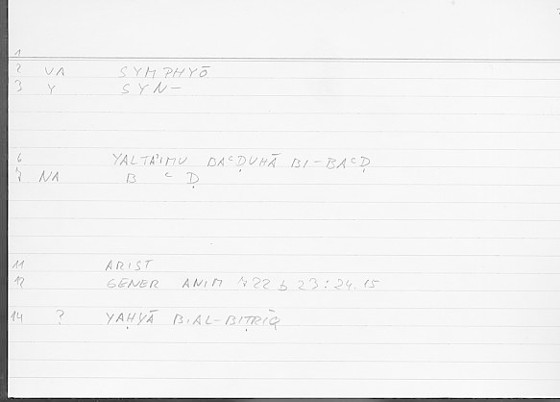 1
2 VA SYMPHYŌ
3 Y SYN-
6 YALTAʾIMU BAᶜḌUHĀ BI-BAᶜḌ
7 NA B ᶜ Ḍ
11 ARIST
12 GENER ANIM 722 b 23:24.15
14 ? YAḤYĀ B.AL-BIṬRĪQ